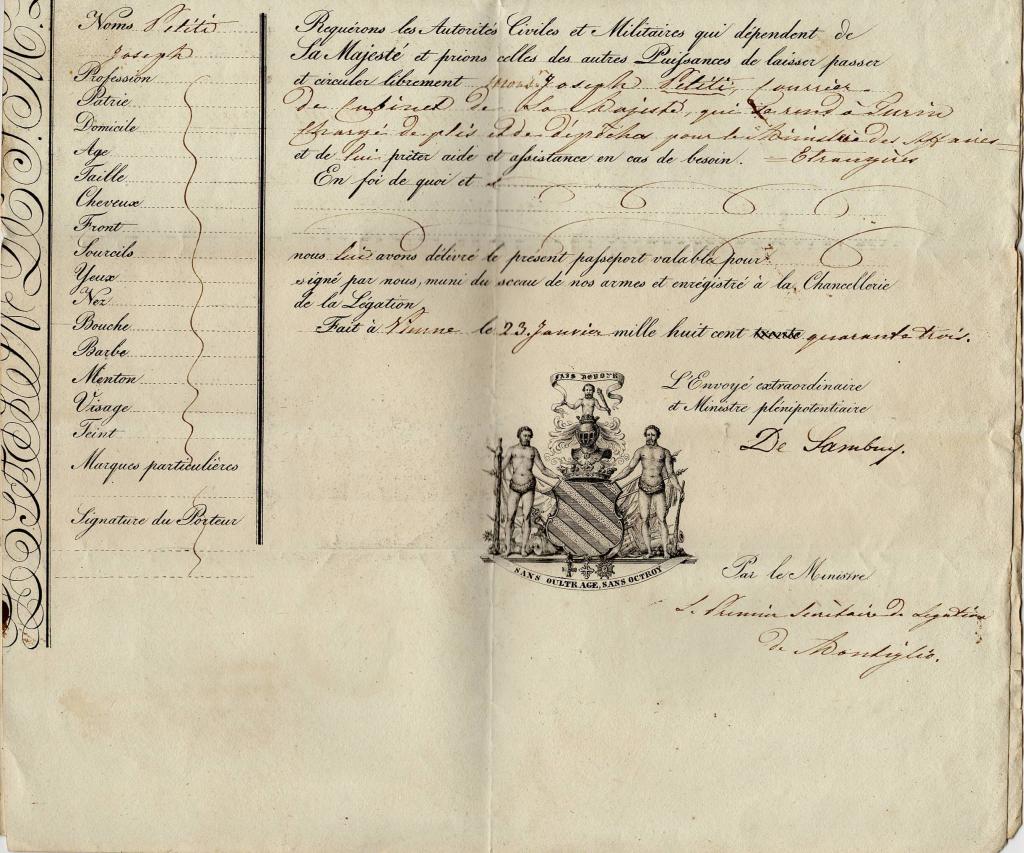 Noms Petiti
Joseph
Profession
Patrie
Domicile
Age
Taille
Cheveux
Front
Sourcils
Yeux
Nez
Bouche
Barbe
Menton
Visage
Teint
Marques particulières
Signature du Porteur
Requérons les Autorités Civiles et Militaires qui dépendent de
Sa Majesté et prions celles des autres Puissances de laisser passer
et circuler librement Joseph Petiti, Courrier
de Cabinet de Sa Majesté, qui se rend à Turin
chargé de plis et de dépêches pour le Ministère des Affaires
et de lui prêter aide et assistance en cas de besoin. = Etrangères
En foi de quoi et
nous lui avons délivré le présent passeport valable pour
signé par nous, muni du sceau de nos armes et enrégistré à la Chancellerie
de la Légation.
Fait à Vienne le 23 Janvier mille huit cent trente quarante trois.
FAIS BONDIR
L'Envoyé extraordinaire
et Ministre plénipotentiaire
De Sambuy.
SANS OULTRAGE, SANS OCTROY
Par le Ministre
Le Premier Secrétaire de Légation
de Montiglio.